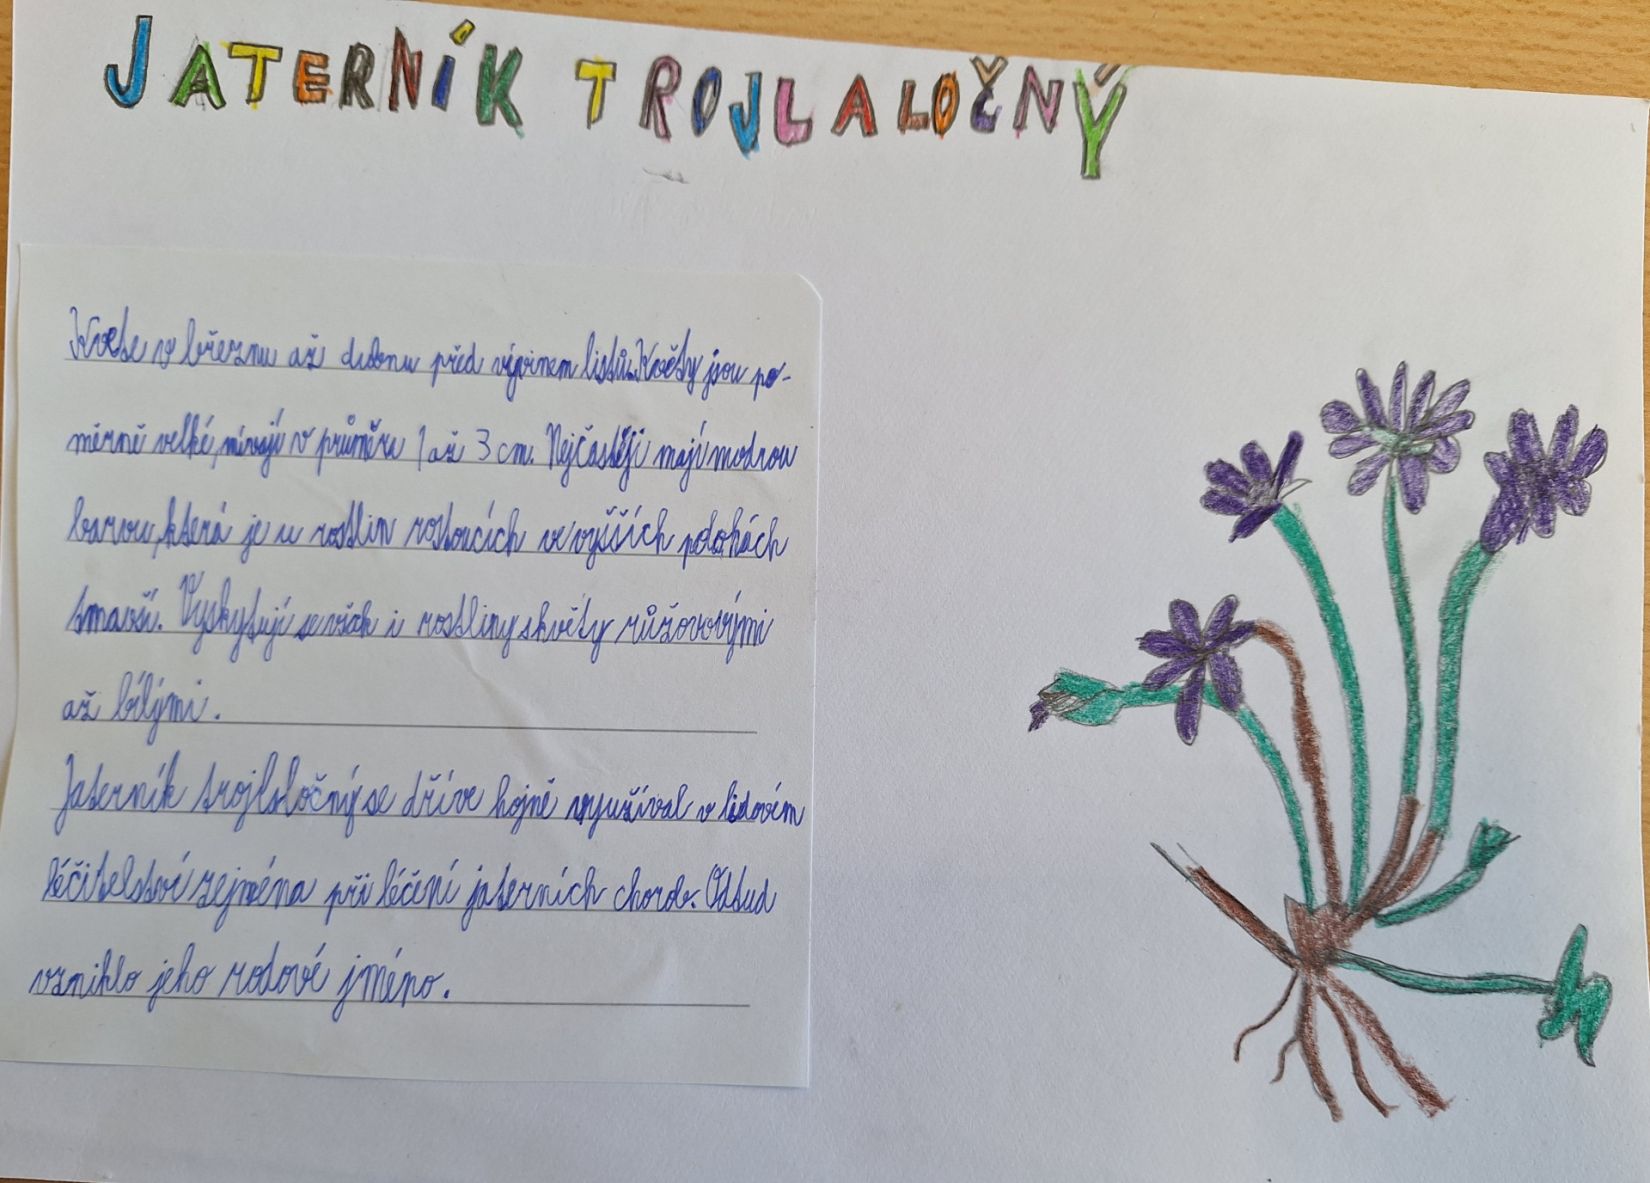 JATERNÍK TROJLALOČNÝ
Kvete v březnu až dubnu před vývinem listů. Květy jsou po-
měrně velké, mívají v průměru 1 až 3 cm. Nejčastěji mají modrou
barvu, která je u rostlin rostoucích ve vyšších polohách
tmavší. Vyskytují se však i rostliny s květy růžovovými
až bílými.
Jaterník trojlaločný se dříve hojně využíval v lidovém
léčitelství zejména při léčení jaterních chorob. Odtud
vzniklo jeho rodové jméno.